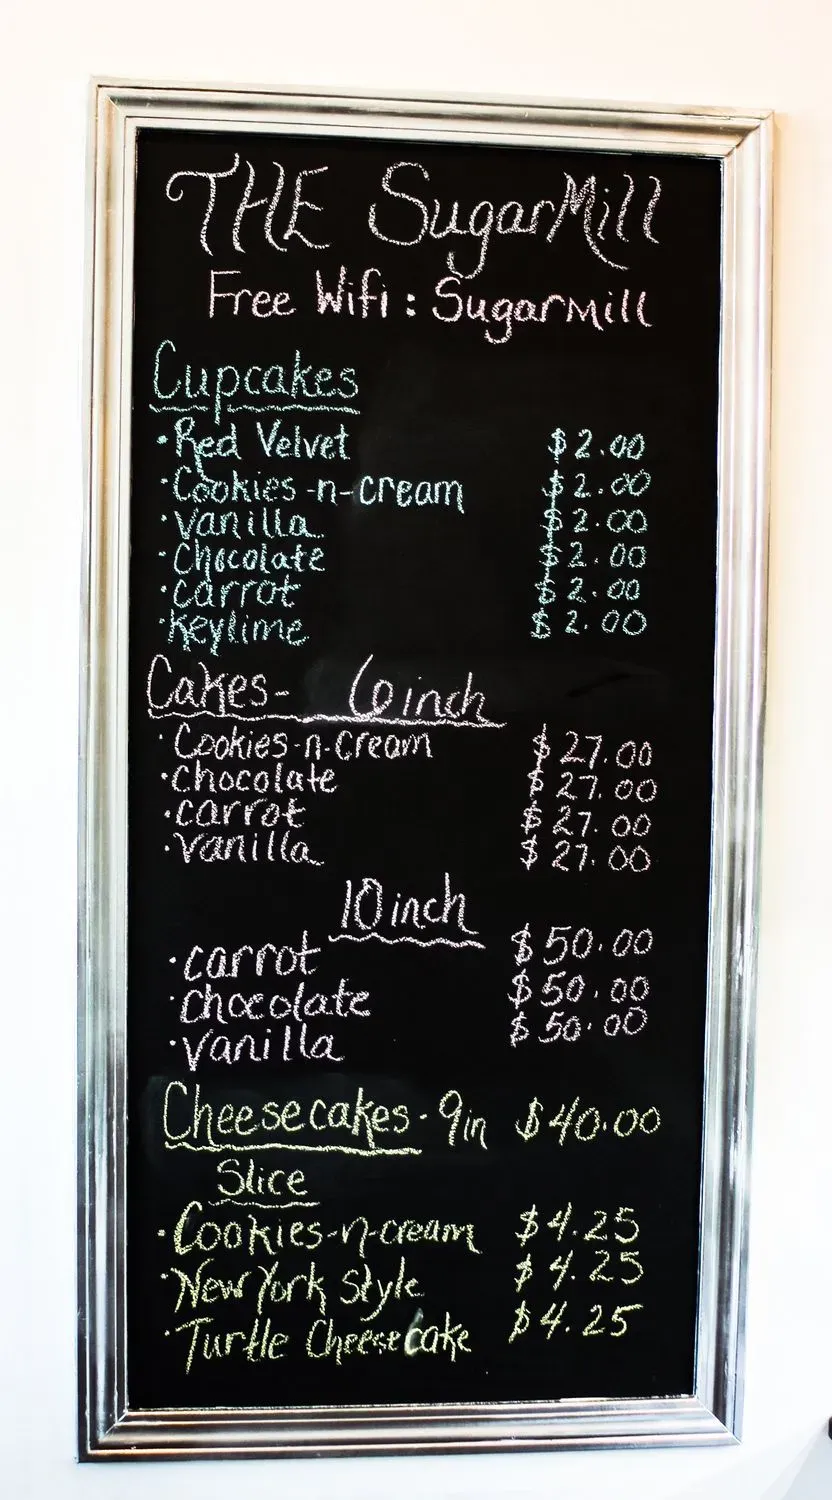 THE SugarMill
Free Wifi : Sugarmill
Cupcakes
· Red Velvet $2.00
· Cookies-n-cream $2.00
· vanilla $2.00
· chocolate $2.00
· carrot $2.00
· Keylime $2.00
Cakes- 6 inch
· Cookies-n-cream $27.00
· chocolate $27.00
· carrot $27.00
· vanilla $27.00
10 inch
· carrot $50.00
· chocolate $50.00
· vanilla $50.00
Cheesecakes - 9in $40.00
Slice
· Cookies-n-cream $4.25
· New York Style $4.25
· Turtle Cheesecake $4.25